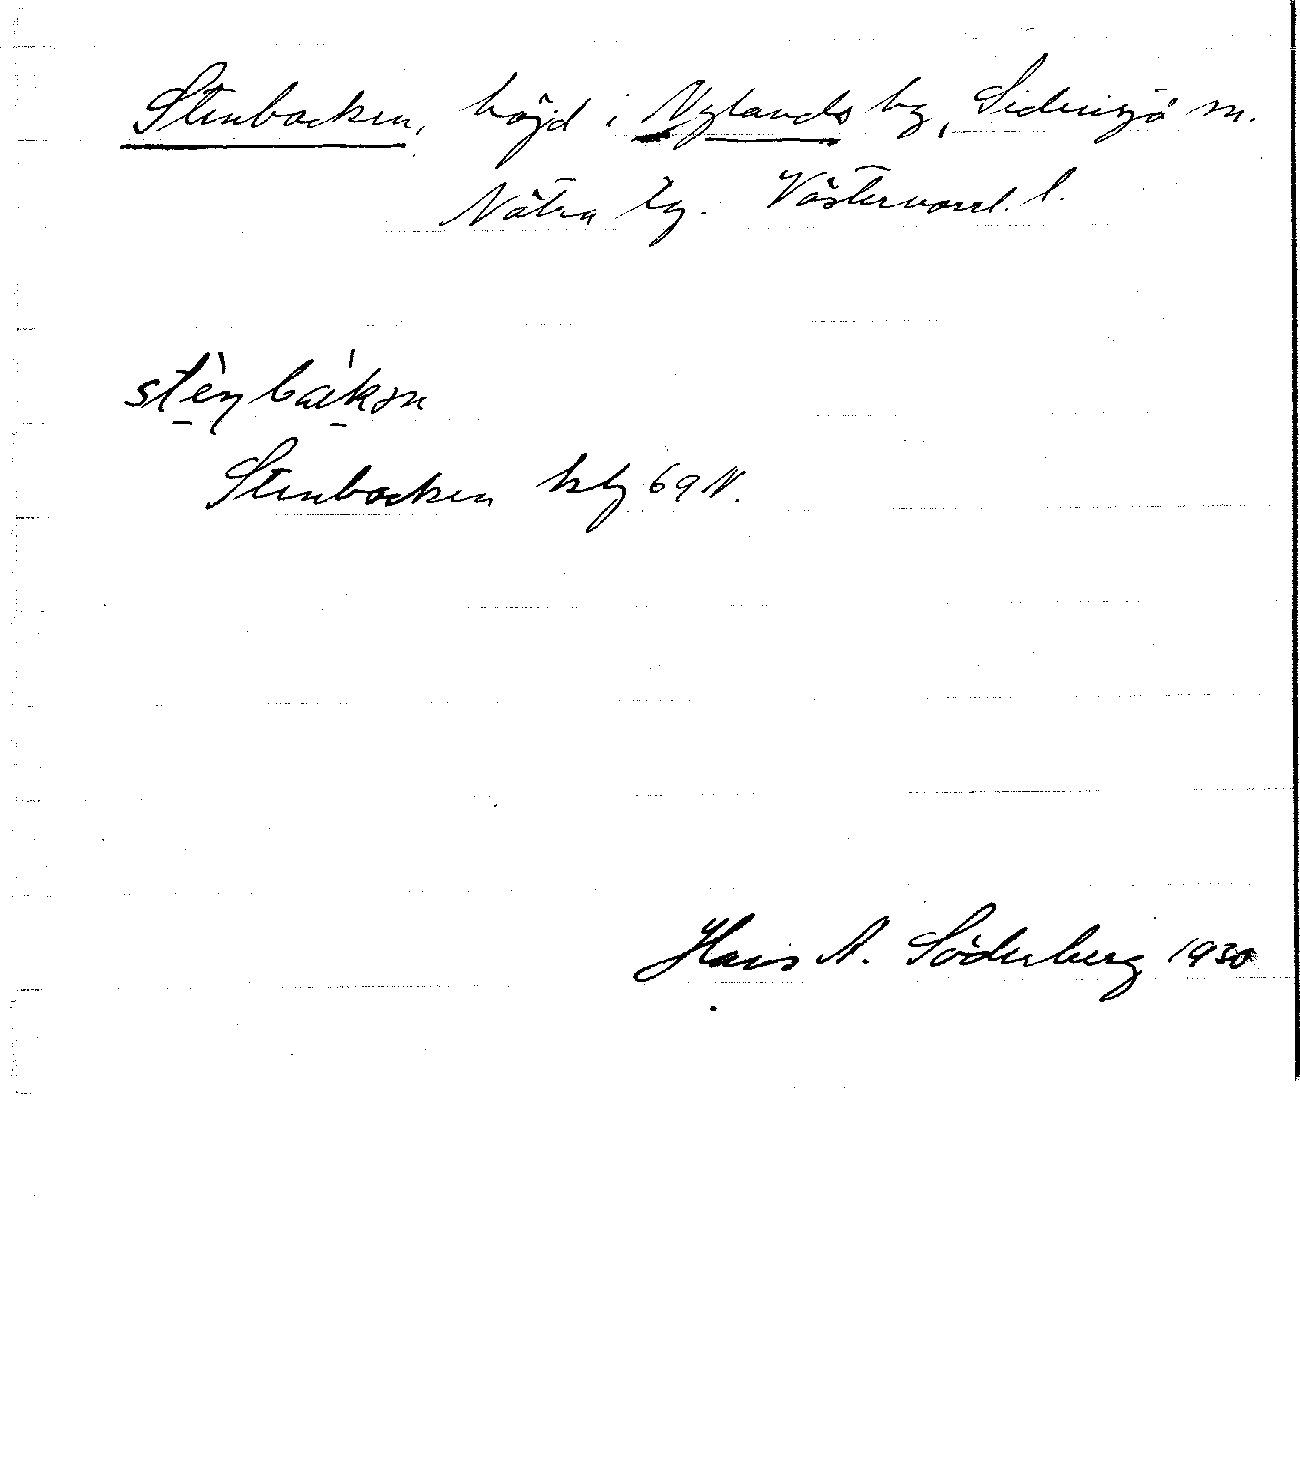 Stenbacken, höjd i Nylands by, Sidensjö sn.
Nätra tg. Västernorrl. l.
stèn bákən
Stenbacken kbl 69 N.
Hans A. Söderberg 1930